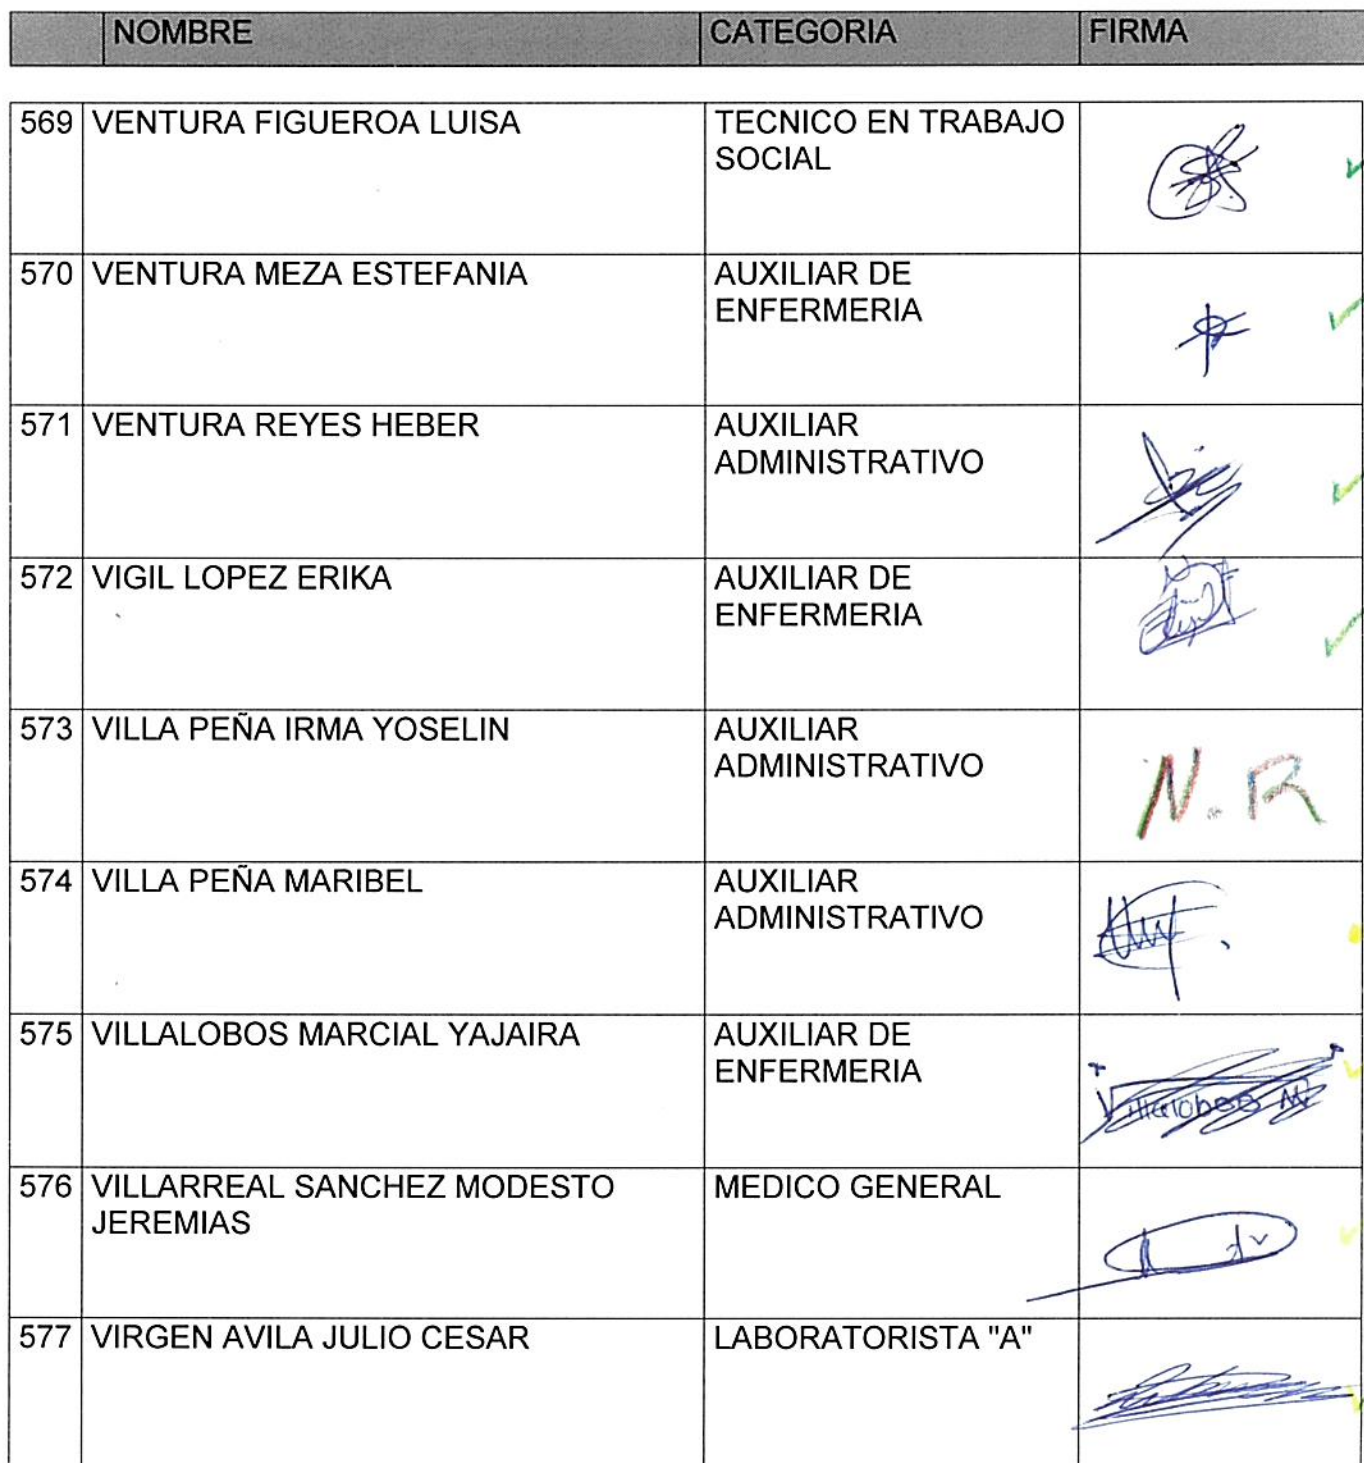 NOMBRE CATEGORIA FIRMA
569 VENTURA FIGUEROA LUISA TECNICO EN TRABAJO
SOCIAL
570 VENTURA MEZA ESTEFANIA AUXILIAR DE
ENFERMERIA
571 VENTURA REYES HEBER AUXILIAR
ADMINISTRATIVO
572 VIGIL LOPEZ ERIKA AUXILIAR DE
ENFERMERIA
573 VILLA PEÑA IRMA YOSELIN AUXILIAR
ADMINISTRATIVO
N.R
574 VILLA PEÑA MARIBEL AUXILIAR
ADMINISTRATIVO
575 VILLALOBOS MARCIAL YAJAIRA AUXILIAR DE
ENFERMERIA
Villalobos M
576 VILLARREAL SANCHEZ MODESTO MEDICO GENERAL
JEREMIAS
577 VIRGEN AVILA JULIO CESAR LABORATORISTA "A"